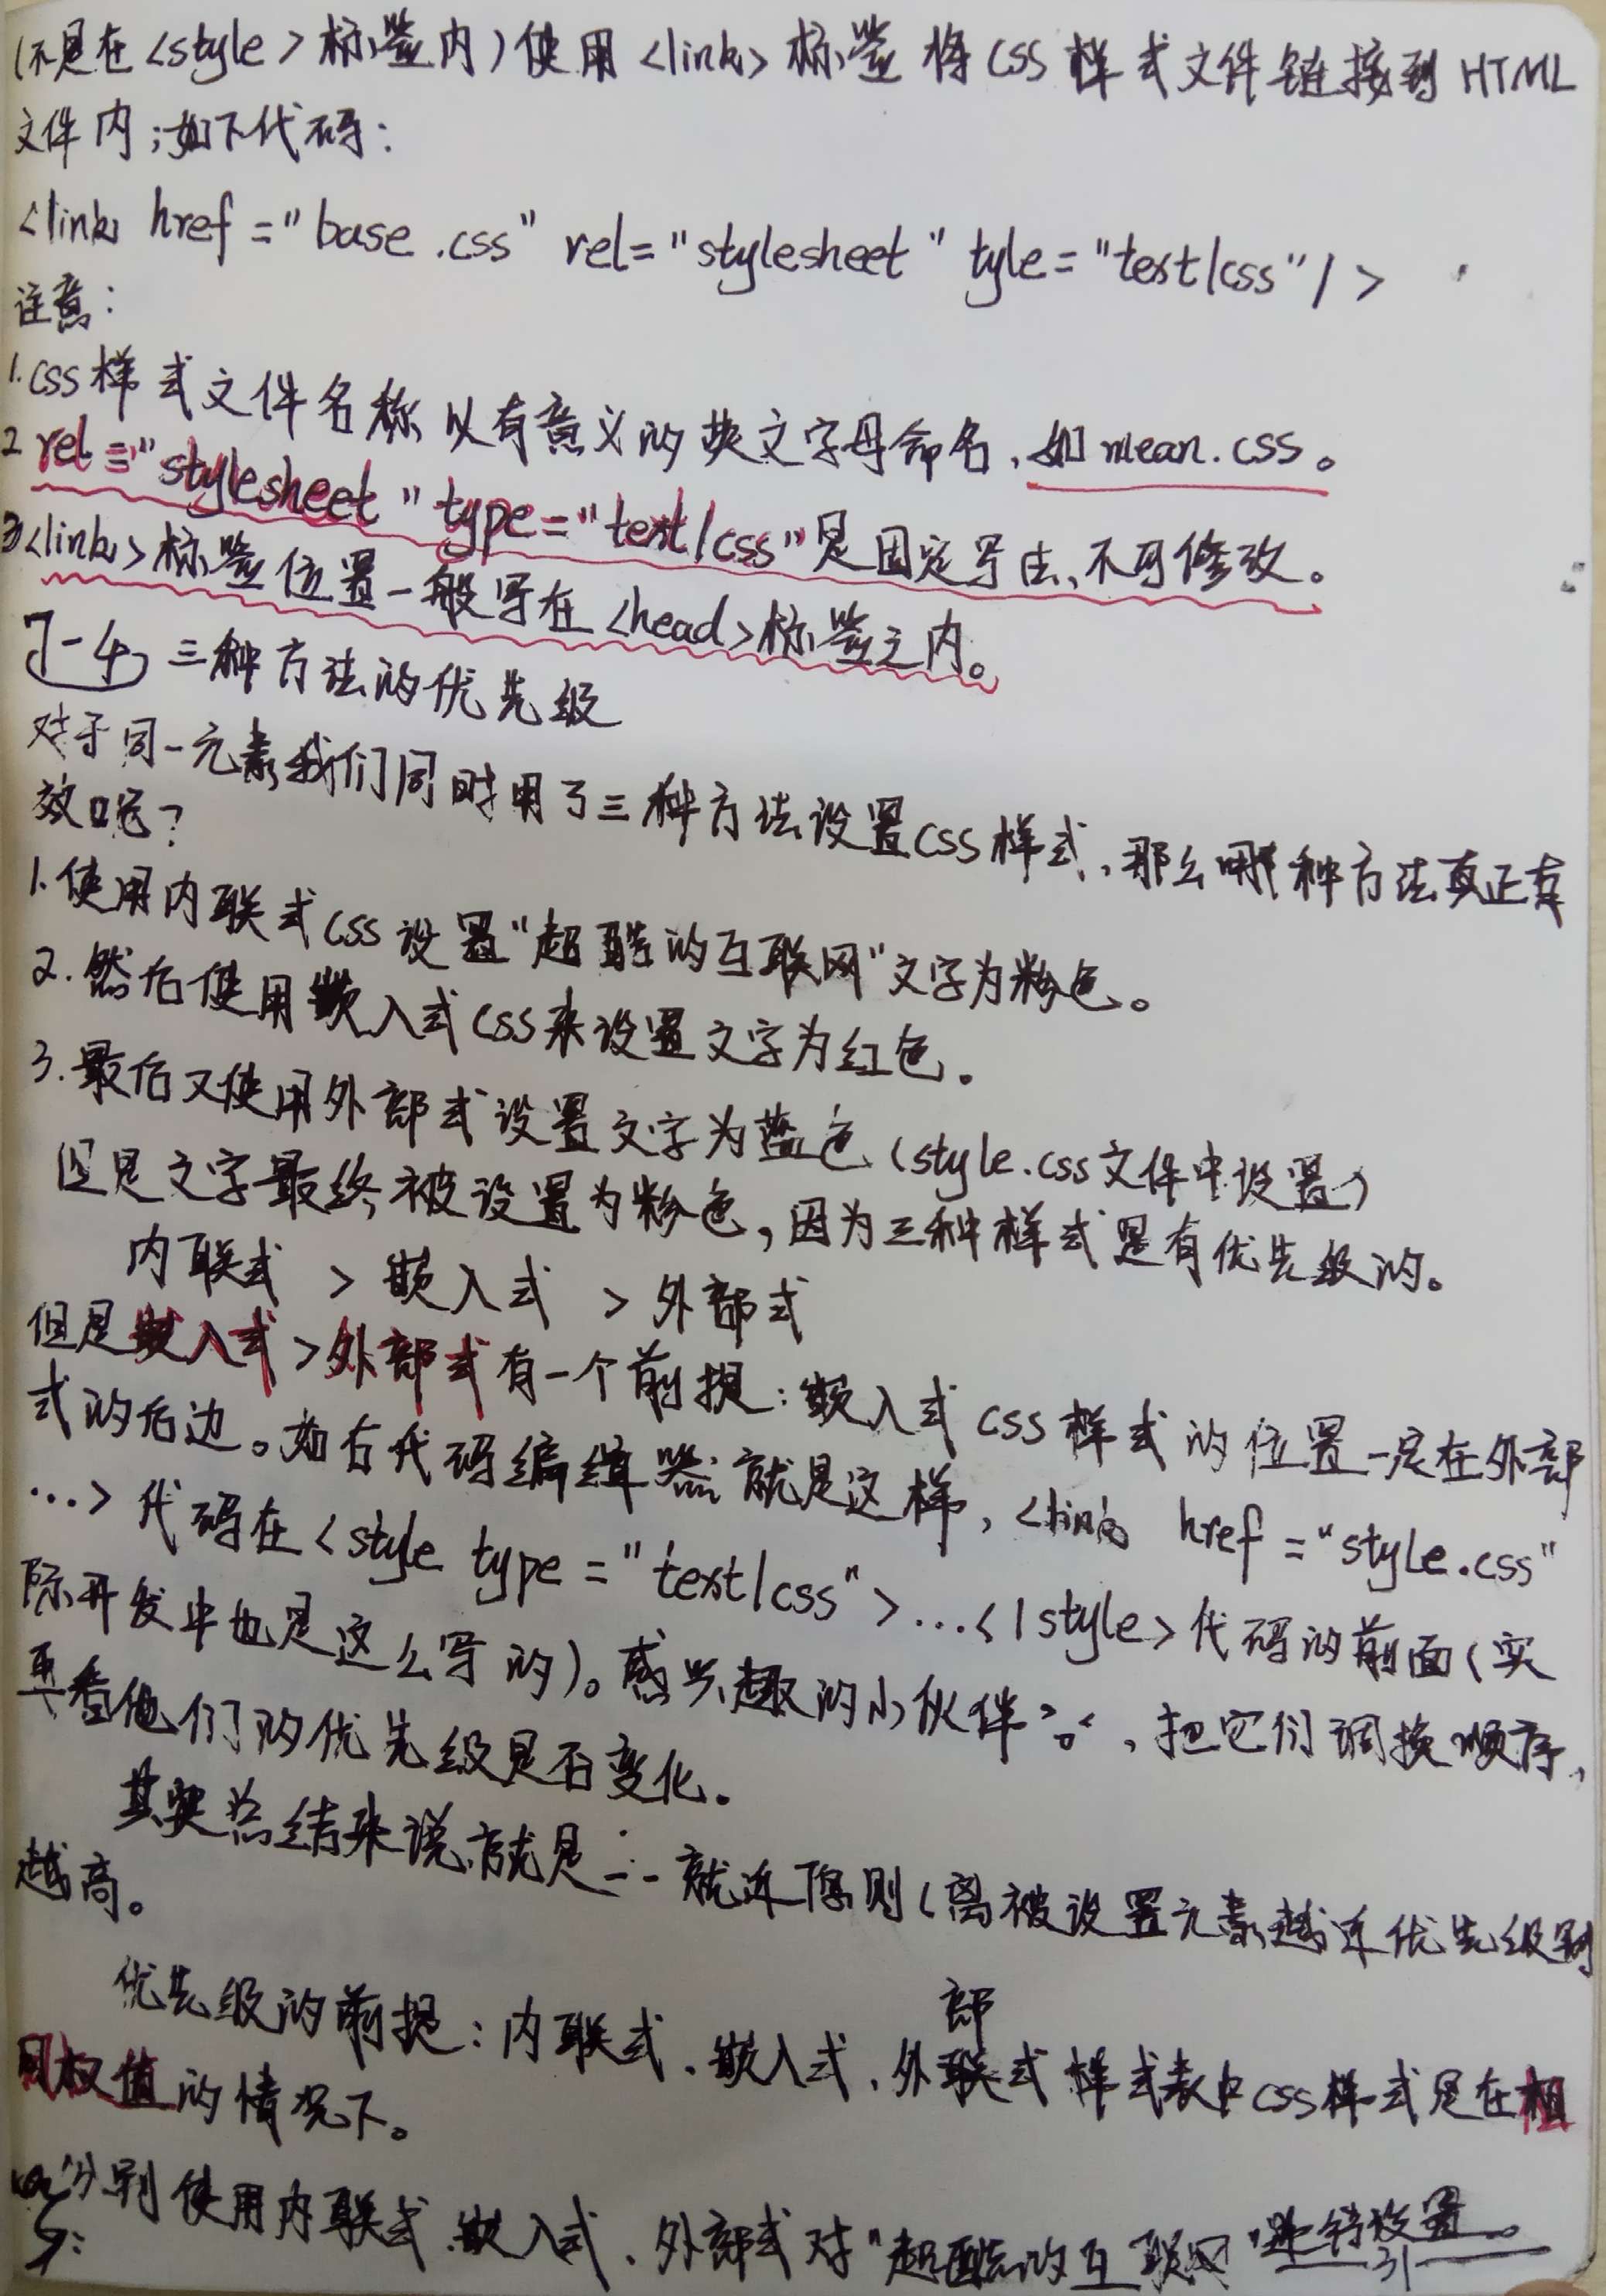 (不是在<style>标签内)使用<link>标签将css样式文件链接到HTML
文件内;如下代码:
<link href="base.css" rel="stylesheet" tyle="text/css"/>
注意:
1.css样式文件名称以有意义的英文字母命名,如mean.css。
2 rel="stylesheet" type="text/css"是固定写法,不可修改。
3<link>标签位置一般写在<head>标签之内。
7-4 三种方法的优先级
对于同一元素我们同时用了三种方法设置css样式,那么哪种方法真正有
效呢?
1.使用内联式css设置"超酷的互联网"文字为粉色。
2.然后使用嵌入式css来设置文字为红色。
3.最后又使用外部式设置文字为蓝色(style.css文件中设置)
但是文字最终被设置为粉色,因为三种样式是有优先级的。
内联式 > 嵌入式 > 外部式
但是嵌入式>外部式有一个前提:嵌入式css样式的位置一定在外部
式的后边。如右代码编辑器就是这样,<link href="style.css"
...>代码在<style type="text/css">...</style>代码的前面(实
际开发中也是这么写的)。感兴趣的小伙伴,把它们调换顺序,
再看他们的优先级是否变化。
其实总结来说,就是--就近原则(离被设置元素越近优先级别
越高。
优先级的前提:内联式、嵌入式、外部联式样式表中css样式是在相
同权值的情况下。
分别使用内联式、嵌入式、外部式对"超酷的互联网"进行设置。
31